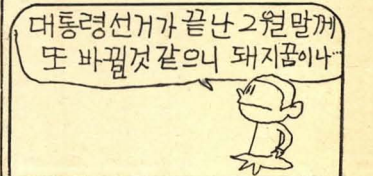 대통령선거가 끝난 2월말께
또 바뀔것 같으니 돼지꿈이나…